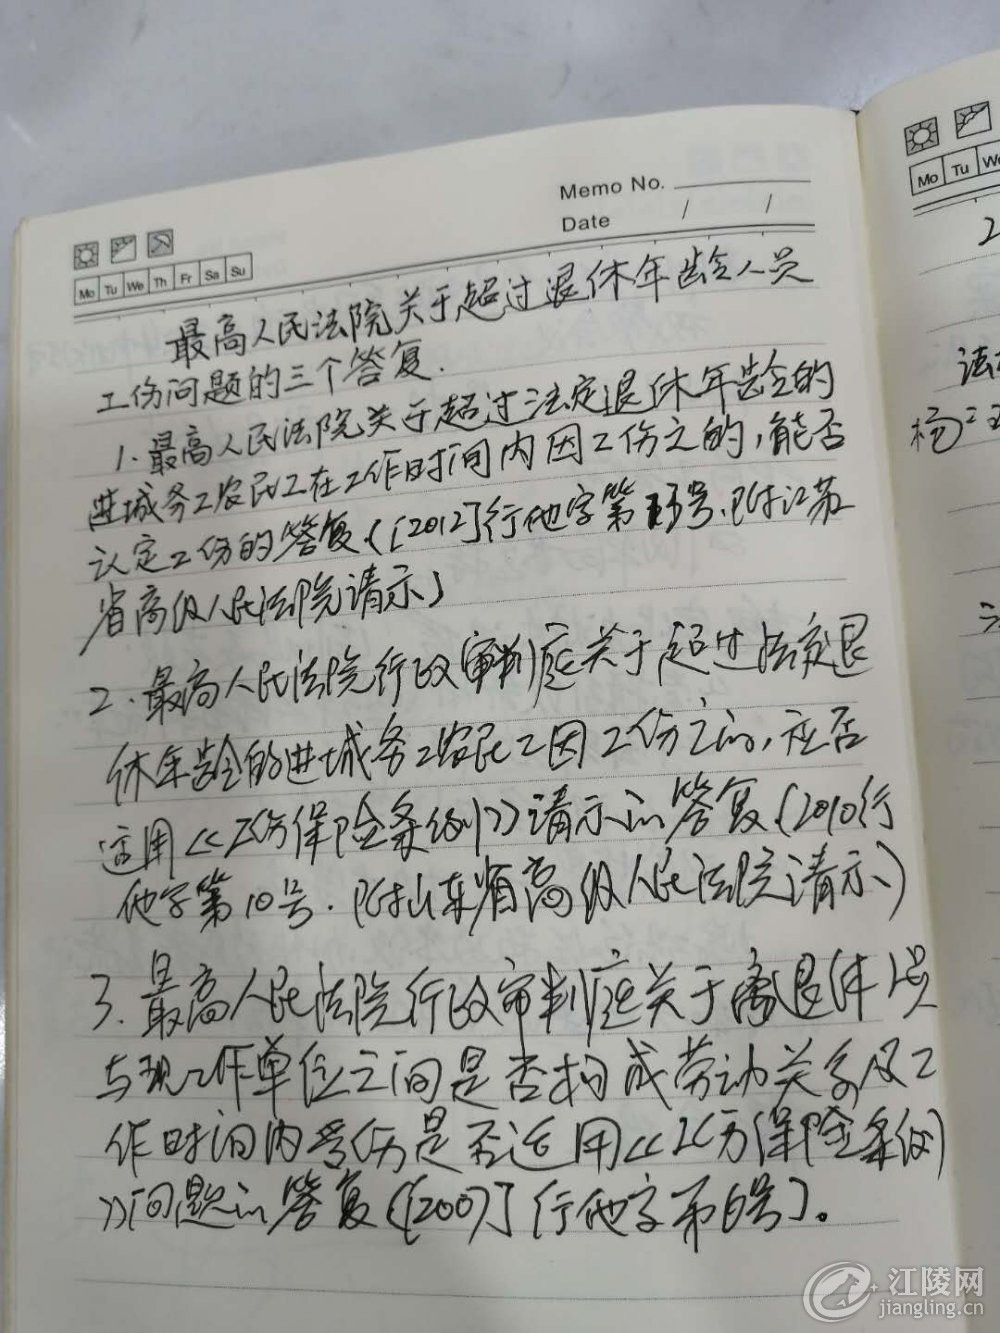 Memo No.
Date / /
Mo Tu We Th Fr Sa Su
Mo Tu We
最高人民法院关于超过退休年龄人员
工伤问题的三个答复.
1.最高人民法院关于超过法定退休年龄的
进城务工农民工在工作时间内因工伤亡的,能否
认定工伤的答复([2012]行他字第13号.附江苏
省高级人民法院请示)
2.最高人民法院行政审判庭关于超过法定退
休年龄的进城务工农民工因工伤亡的,应否
适用《工伤保险条例》请示的答复(2010行
他字第10号.附山东省高级人民法院请示)
3.最高人民法院行政审判庭关于离退休人员
与现工作单位之间是否构成劳动关系及工
作时间内受伤是否适用《工伤保险条例
》问题的答复([2007]行他字第6号)。
江陵网
jiangling.cn